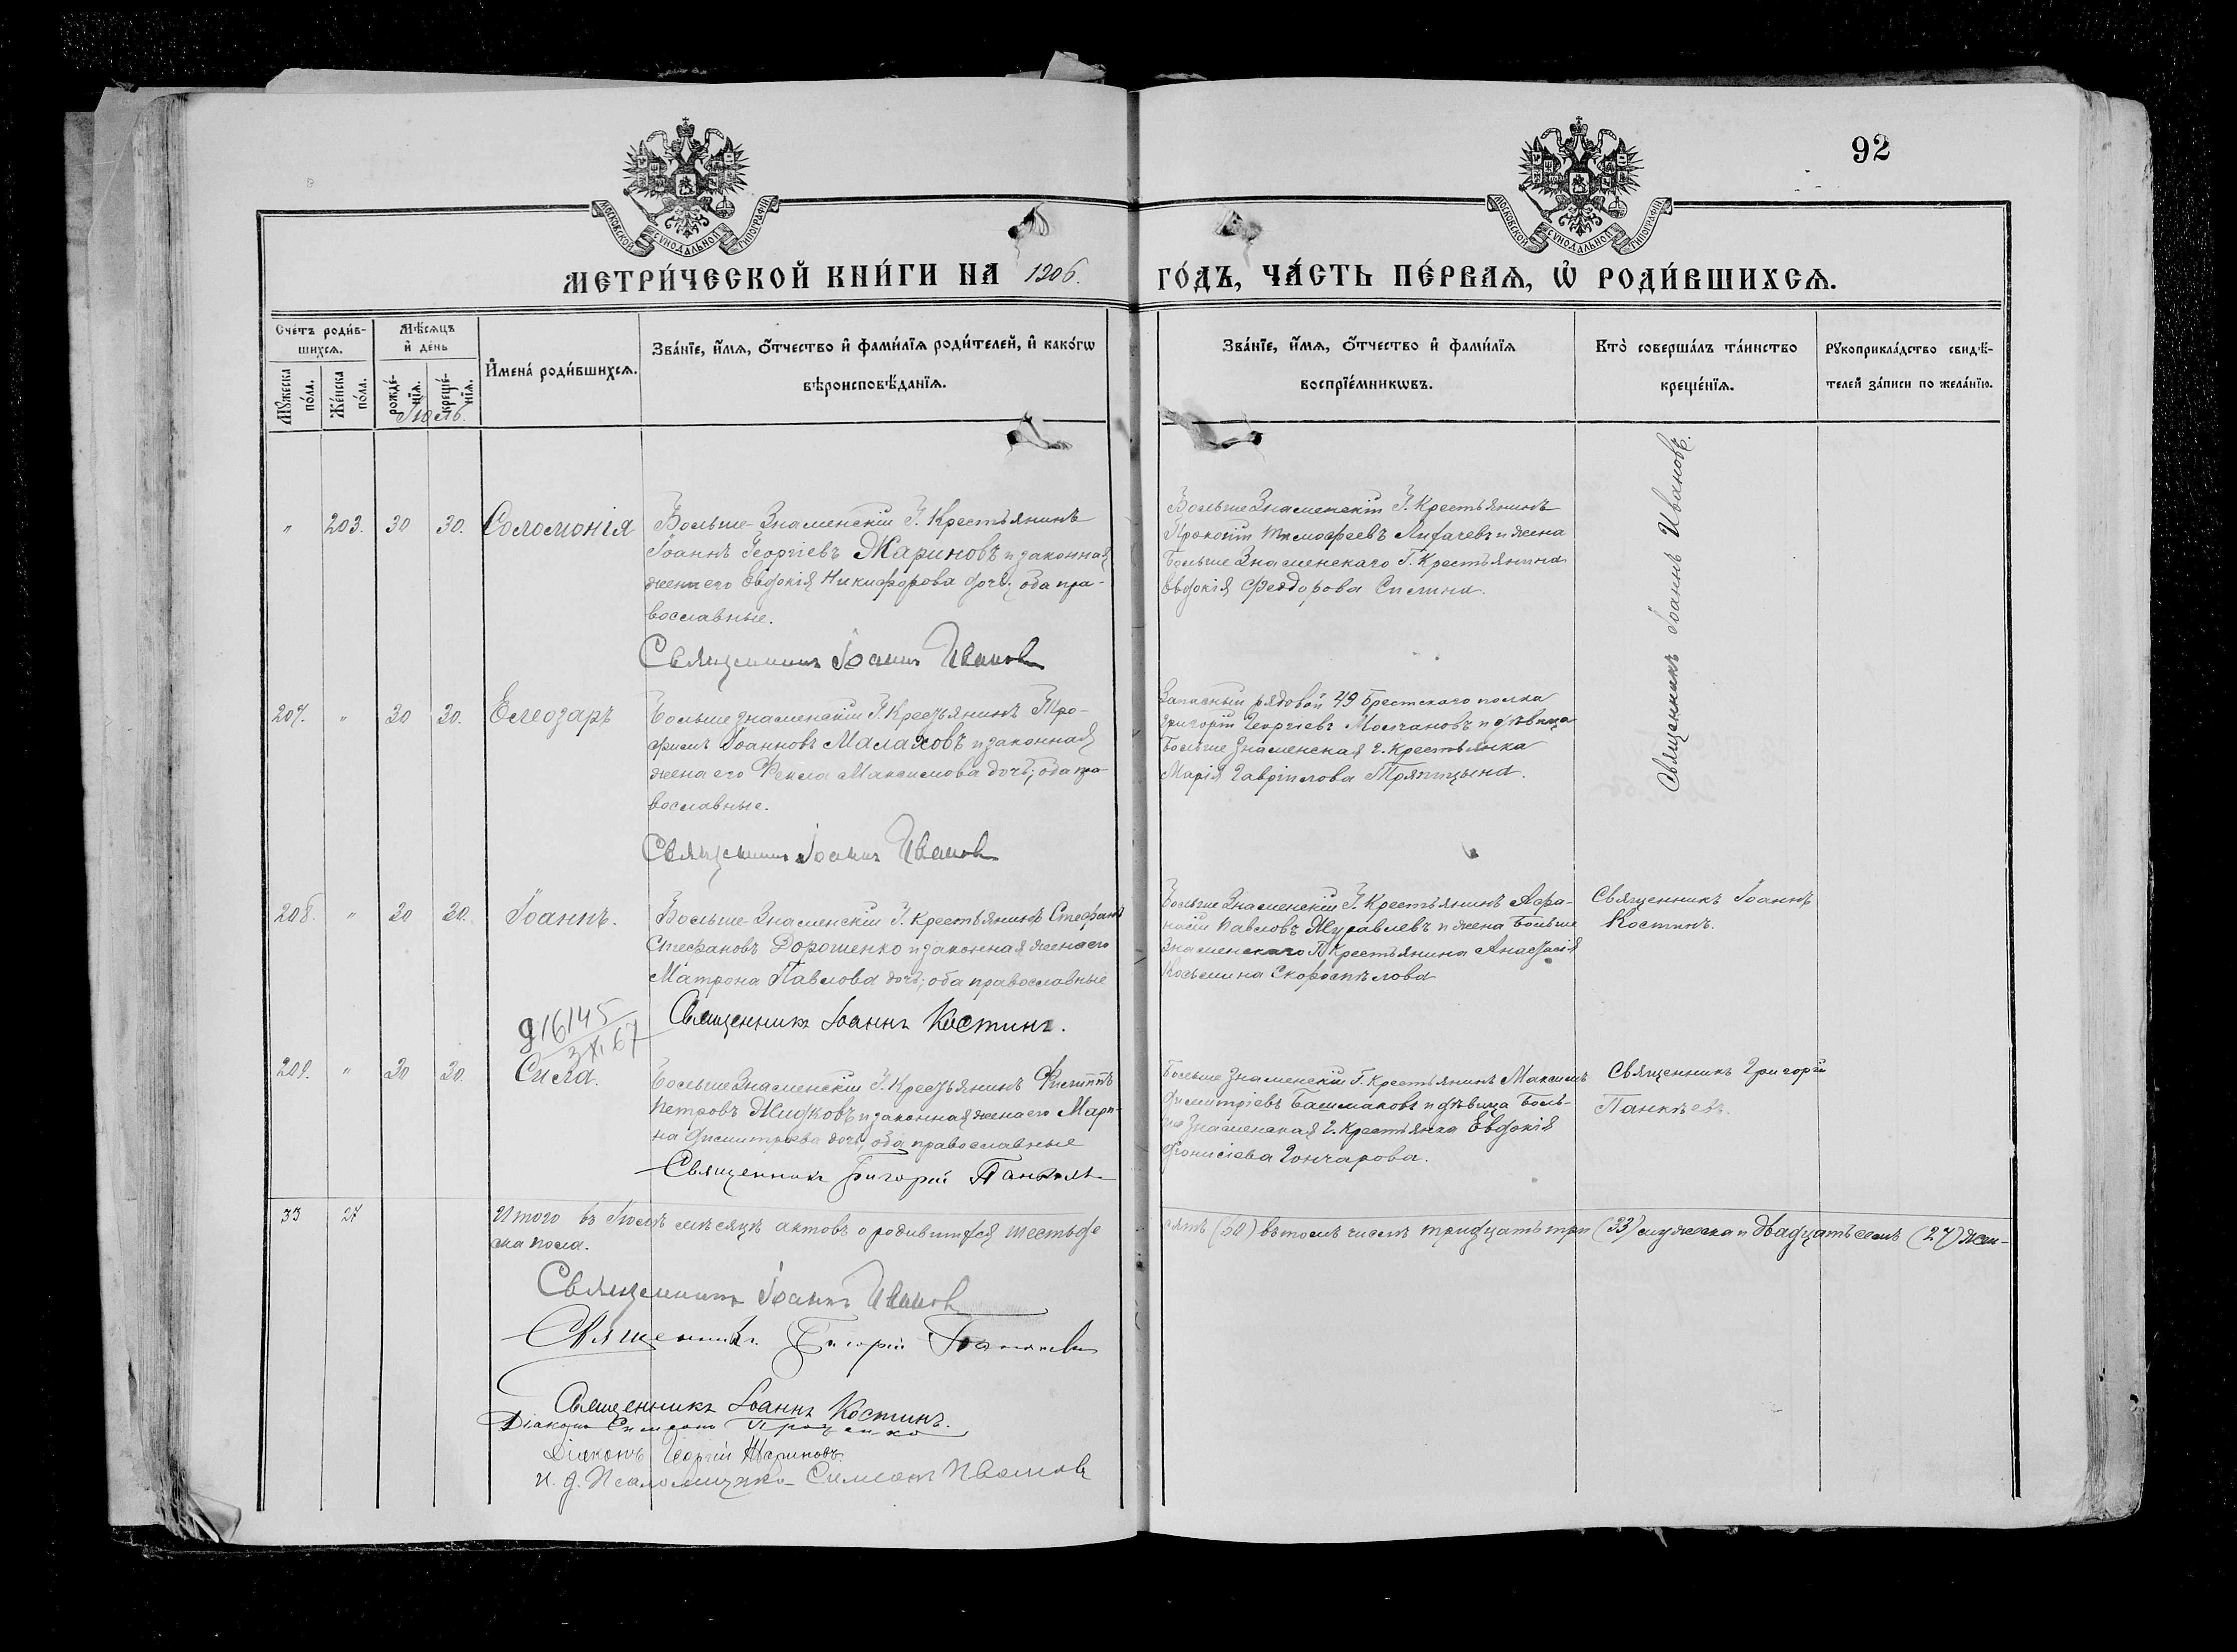 92
МОСКОВСКОЙ СѴНОДАЛЬНОЙ ТИПОГРАФІИ
МОСКОВСКОЙ СѴНОДАЛЬНОЙ ТИПОГРАФІИ
МЕТРИ́ЧЕСКОЙ КНИ́ГИ НА 1906. ГО́ДЪ, ЧА́СТЬ ПЕ́РВАѦ, Ѡ҆ РОДИ́ВШИХСѦ.
Сче́тъ роди́в-
шихсѧ.
Мѣ́сѧцъ
и҆ де́нь
И҆мена̀ роди́вшихсѧ.
Зва́нїе, и҆́мѧ, ѻ҆́тчество и҆ фами́лїѧ роди́телей, и҆ како́гѡ
вѣроисповѣ́данїѧ.
Зва́нїе, и҆́мѧ, ѻ҆́тчество и҆ фами́лїѧ
воспрїе́мникѡвъ.
Кто̀ соверша́лъ та́инство
креще́нїѧ.
Рꙋкоприкла́дство свидѣ́-
телей за́писи по жела́нїю.
Мꙋ́жеска
по́ла.
Же́нска
по́ла.
рожде́-
нїѧ.
креще́-
нїѧ.
Іюль.
" 203. 30 30. Соломонія
Больше-Знаменскій Г. Крестьянинъ
Іоаннъ Георгіевъ Жариновъ и законная
жена его Евдокія Никифорова дочь; оба пра-
вославные.
Священникъ Іоаннъ Ивановъ
Больше Знаменскій Г. Крестьянинъ
Прокопій Тимофеевъ Лихачевъ и жена
Больше Знаменскаго Г. Крестьянина
Евдокія Феодорова Силина.
Священникъ Іоаннъ Ивановъ.
207. " 30 30. Елеозаръ
Больше Знаменскій Г. Крестьянинъ Тро-
фимъ Іоанновъ Малаховъ и законная
жена его Фекла Максимова дочь; оба пра-
вославные.
Священникъ Іоаннъ Ивановъ
Запасный рядовой 49 Брестскаго полка
Григорій Георгіевъ Молчановъ и дѣвица
Больше Знаменская Г. Крестьянка
Марія Гавріилова Тряпицына.
208. " 30 30. Іоаннъ.
Больше-Знаменскій Г. Крестьянинъ Стефанъ
Стефановъ Дорошенко и законная жена его
Матрона Павлова дочь; оба православные
Священникъ Іоаннъ Костинъ.
Больше Знаменскій Г. Крестьянинъ Афа-
насій Павловъ Журавлевъ и жена Больше
Знаменскаго Г. Крестьянина Анастасія
Косьмина Скороспѣлова
Священникъ Іоаннъ
Костинъ.
д16145
3 XI 67
209. " 30 30. Сила.
Больше Знаменскій Г. Крестьянинъ Филиппъ
Петровъ Жидковъ и законная жена его Мари-
на Димитріева дочь; оба православные
Священникъ Григорій Панкѣевъ
Больше Знаменскій Г. Крестьянинъ Максимъ
Димитріевъ Башмаковъ и дѣвица Боль-
ше Знаменская Г. Крестьянка Евдокія
Діонисіева Гончарова.
Священникъ Григорій
Панкѣевъ.
33 27
Итого въ Іюлѣ мѣсяцѣ актовъ о родившихся шестьде
сятъ (60) въ томъ числѣ тридцать три (33) мужска и двадцать семь (27) жен-
ска пола.
Священникъ Іоаннъ Ивановъ
Священникъ Григорій Панкѣевъ
Священникъ Іоаннъ Костинъ.
Діаконъ Симеонъ Проценко
Діаконъ Георгій Жариновъ.
И. д. Псаломщика Симеонъ Ивановъ